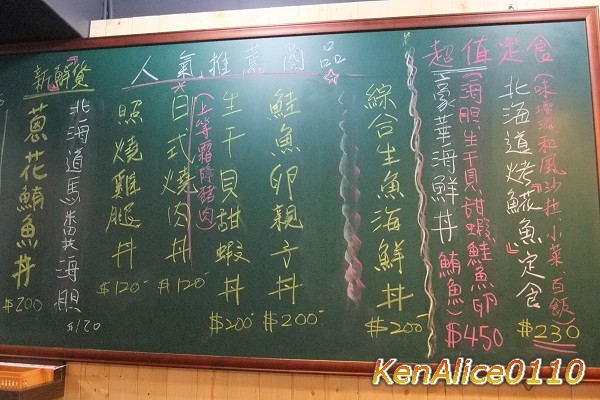 超值定食
北海道烤鯱魚定食
(味增湯、和風沙拉、小菜、白飯)
$230
豪華海鮮丼
(海胆生干貝甜蝦鮭魚卵鮪魚)
$450
人氣推薦商品
綜合生魚海鮮丼
$200
鮭魚卵親子丼
$200
生干貝甜蝦丼
$200
日式燒肉丼
(上等霜降豬肉)
$120
照燒雞腿丼
$120
新鮮貨
北海道馬糞海胆
$120
蔥花鮪魚丼
$200
KenAlice0110